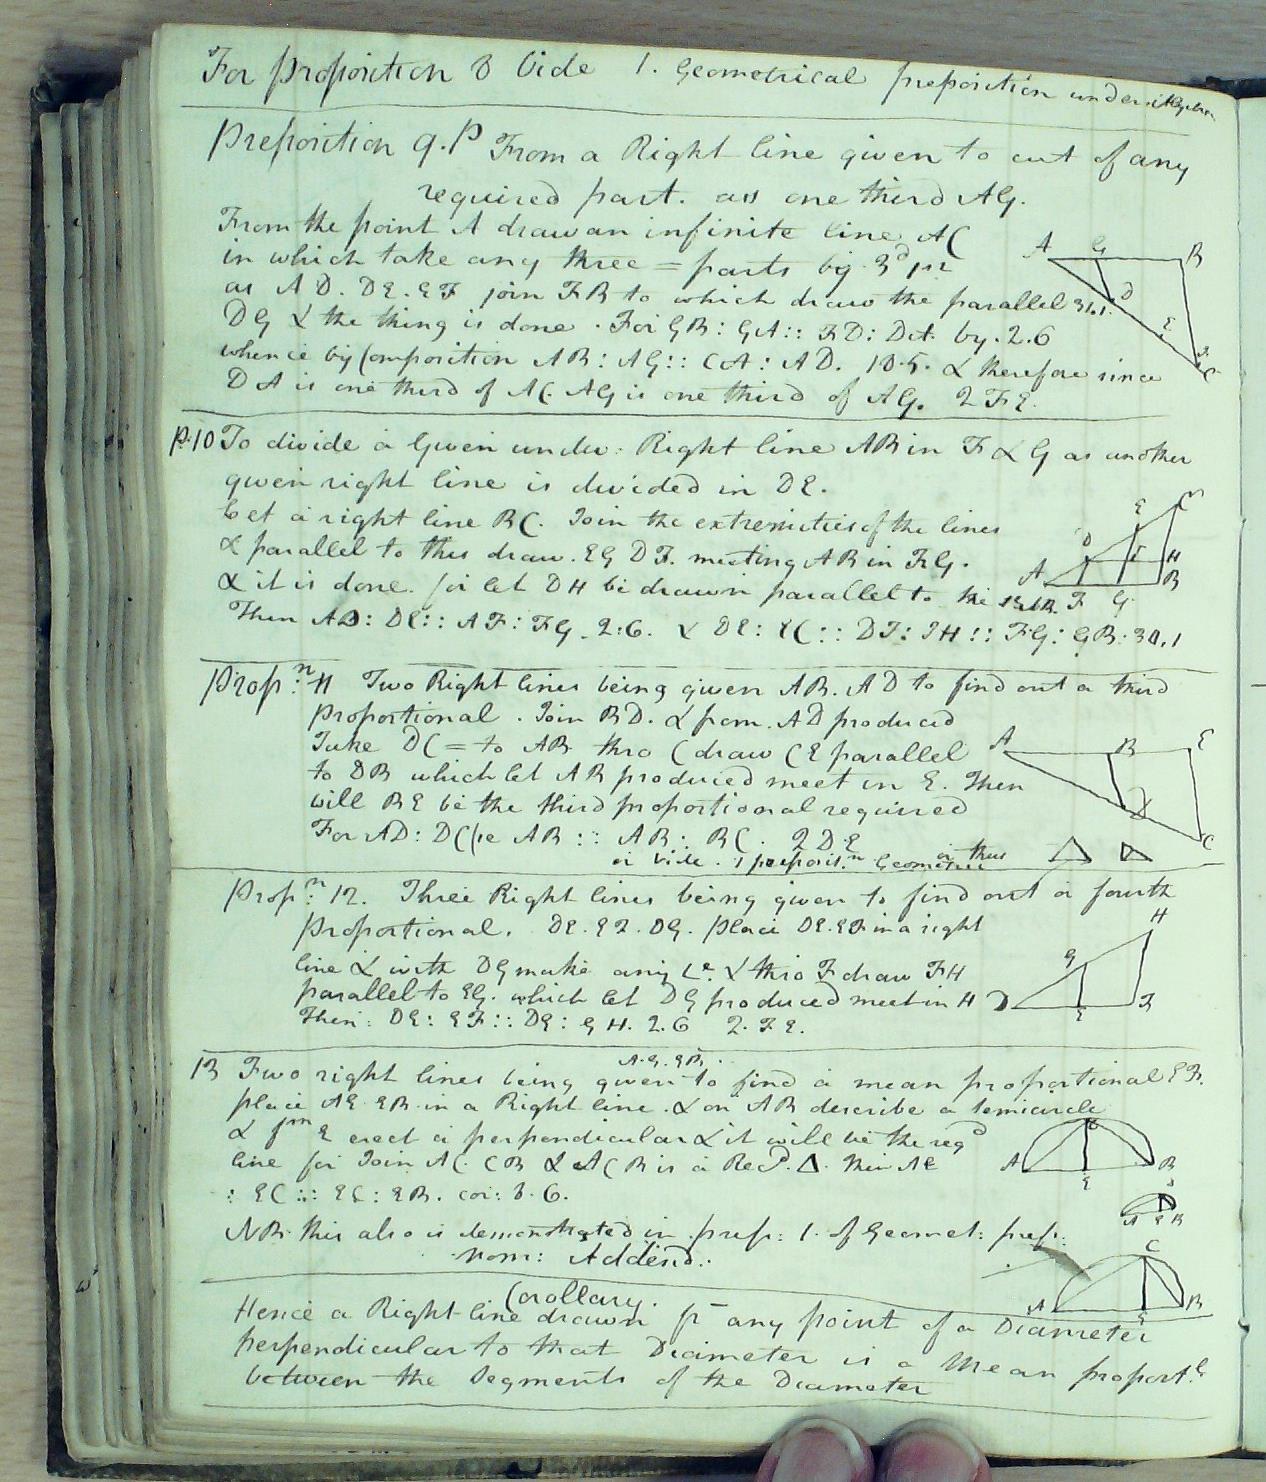 For proposition 8 Vide 1. Geometrical preposition under
Preposition 9. P From a Right line given to cut of any
required part. as one third AG.
From the point A draw an infinite line AC
in which take any three = parts by 3d
as AD. DE. EF join FB to which draw the parallel 31.1.
DG & the thing is done. For GB: GA:: FD: DA. by. 2.6
whence by Composition AB: AG:: CA: AD. 18.5. & therefore since
DA is one third of AC. AG is one third of AG. Q F E.
P.10 To divide a Given undiv: Right line AB in F & G as another
given right line is divided in DE.
Let a right line BC. Join the extremities of the lines
& parallel to this draw. EG DF. meeting AB in FG.
& it is done. for let DH be drawn parallel to the
Then AD: DE:: AF: FG. 2:6. & DE: EC:: DI: IH:: FG: GB: 34.1
Propn: 11 Two Right lines being given AB. AD to find out a third
Proportional. Join BD. & from. AD produced
Take DC = to AB thro C draw CE parallel
to DB which let AB produced meet in E. Then
will BE be the third proportional required
For AD: DC (ie AB :: AB: BC. Q D E
or vide. 1 preposit.n Geometric or thus
Propn: 12. Three Right lines being given to find out a fourth
Proportional. DE. EF. DG. Place DE. EF in a right
line & with DG make any Le. & thro F draw FH
parallel to EG. which let DG produced meet in H
Then: DE: EF:: DG: GH. 2.6 Q. F E.
A.E. EB.
13 Two right lines being given to find a mean proportional EB.
place AE EB in a Right line. & on AB describe a semicircle
& fm E erect a perpendicular & it will be the reqd
line for Join AC. CB & ACB is a Rect. Δ. then AE
: EC:: EC: EB. cor: 8.6.
NB. this also is demonstrated in prep: 1. of Geomet: prep:
nom: Addend.
Corollary.
Hence a Right line drawn fr any point of a Diameter
perpendicular to that Diameter is a Mean proport.l
between the Segments of the Diameter